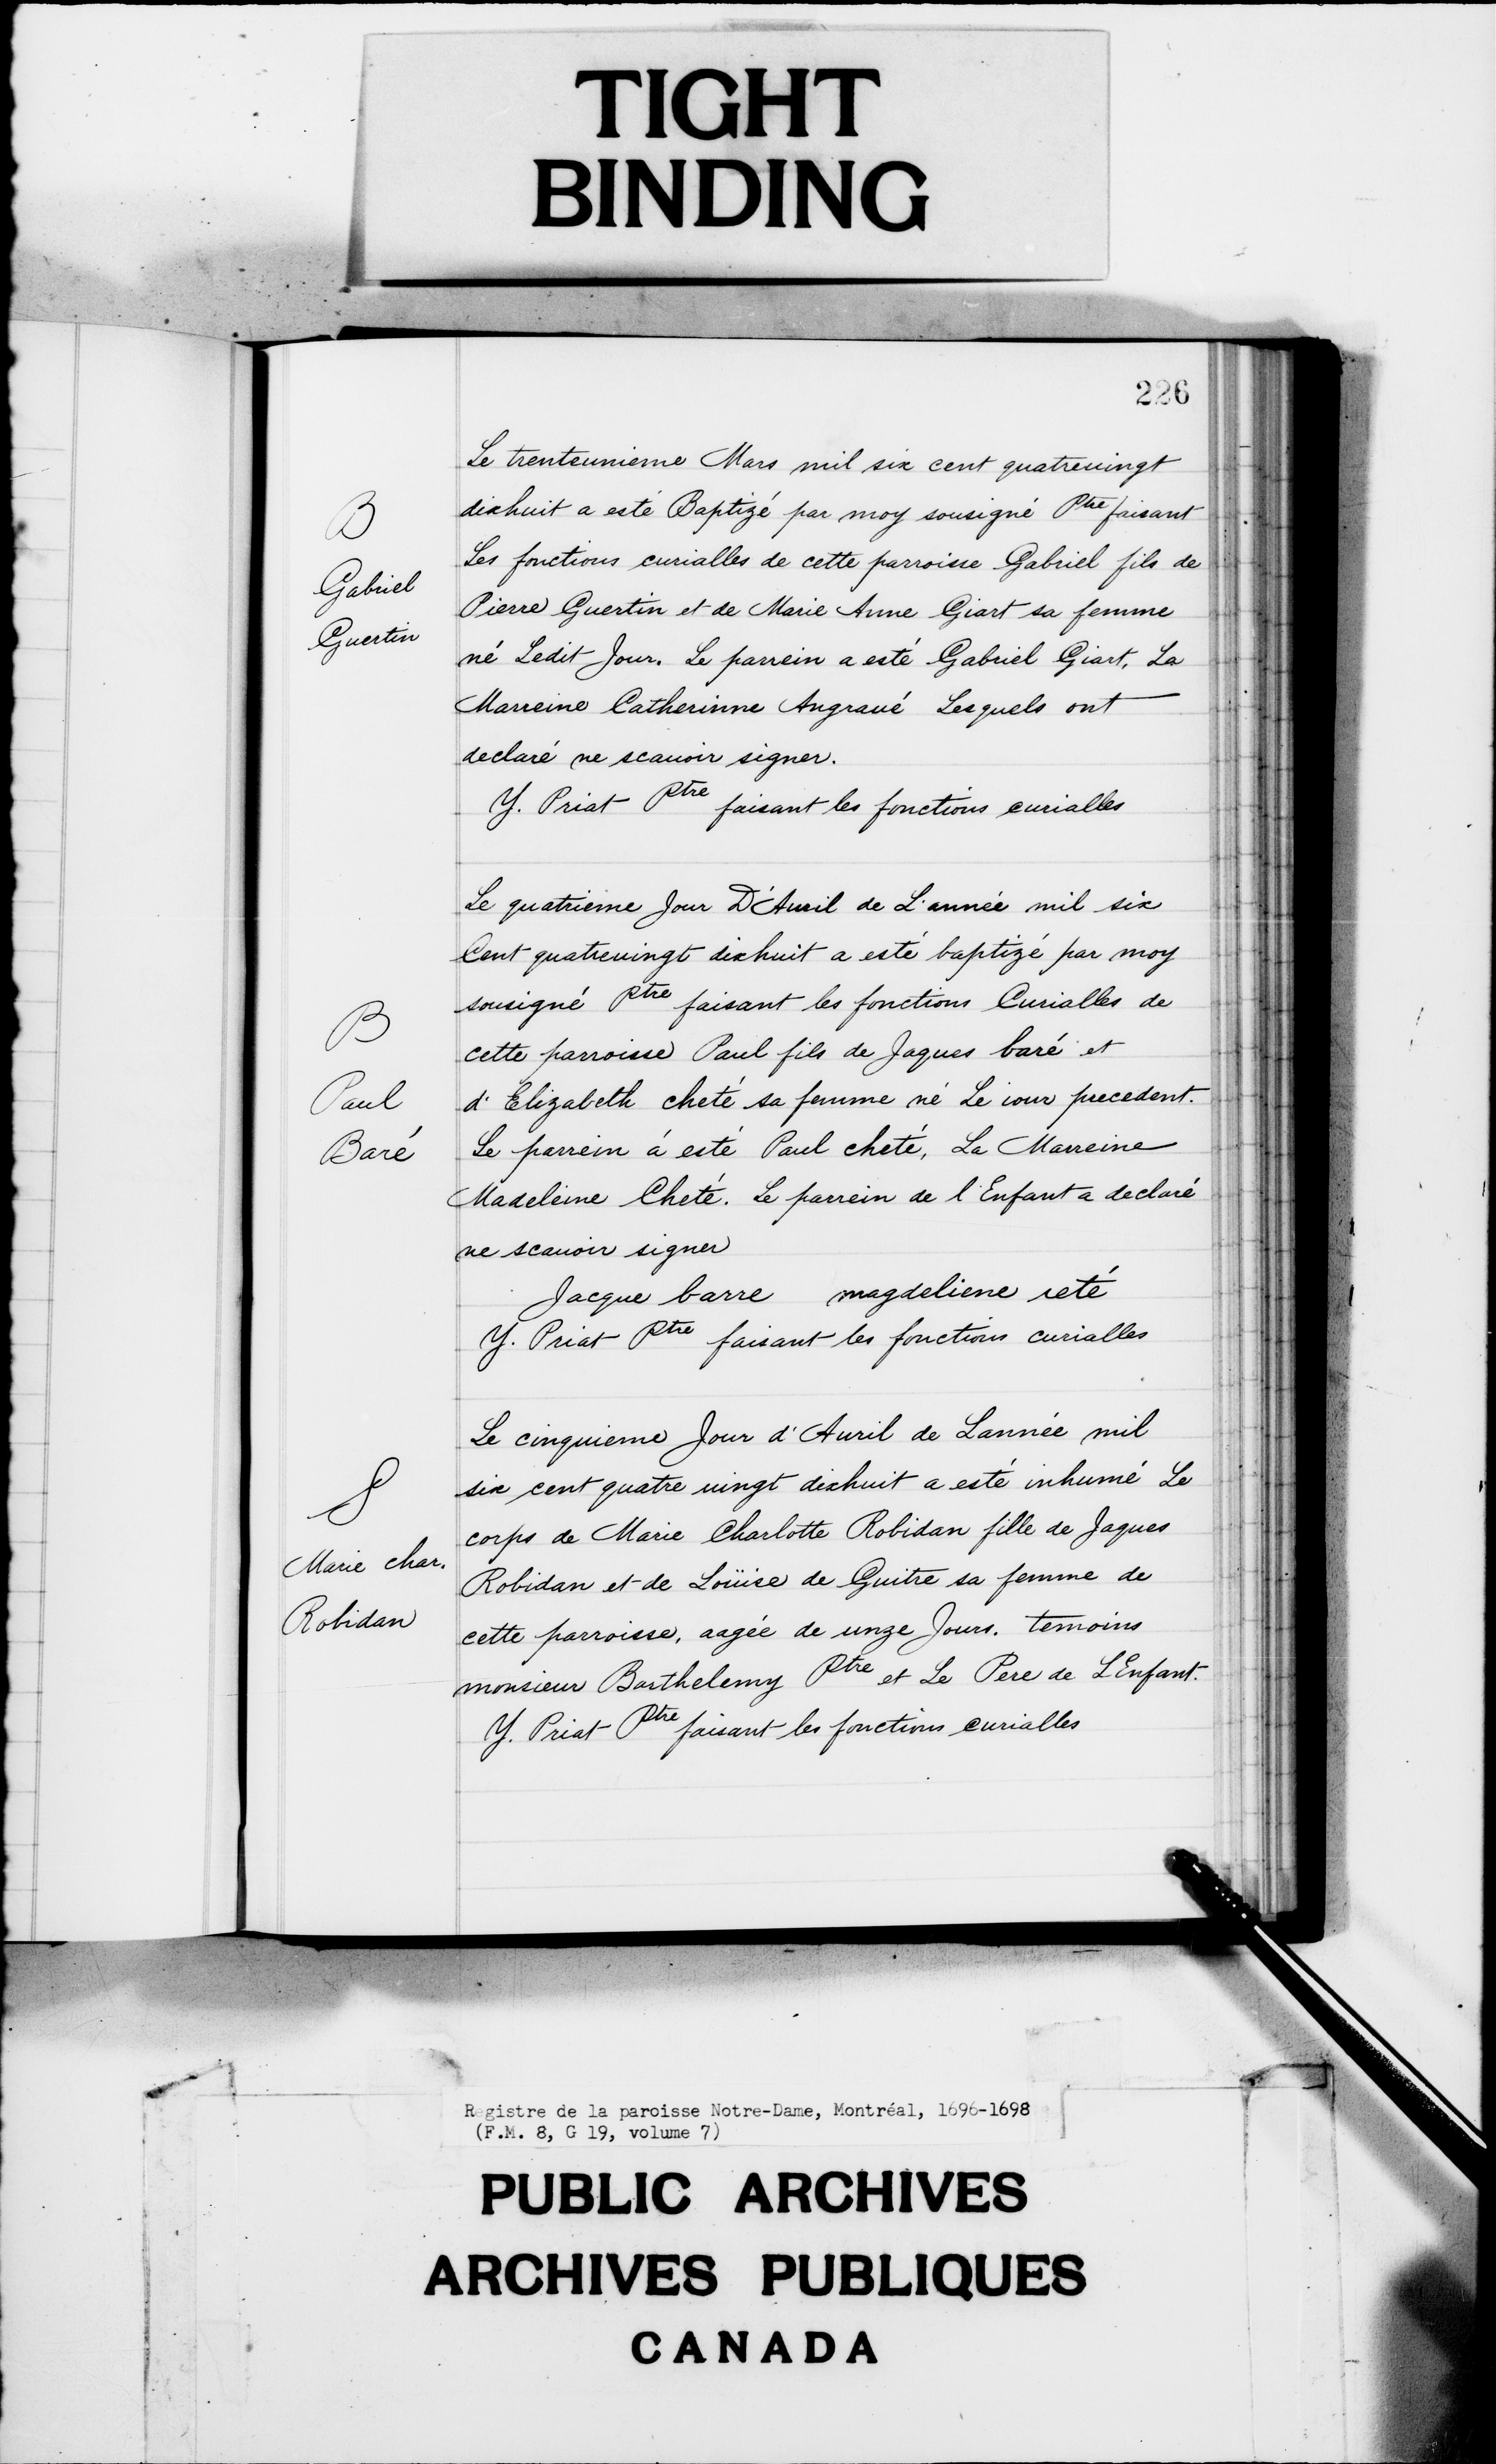 TIGHT
BINDING
226
Le trenteunieme Mars mil six cent quatreuingt
dixhuit a esté Baptizé par moy sousigné Ptre faisant
Les fonctions curialles de cette parroisse Gabriel fils de
Pierre Guertin et de Marie Anne Giart sa femme
né Ledit Jour. Le parrein a esté Gabriel Giart, La
Marreine Catherinne Angraué Lesquels ont
declaré ne scauoir signer.
Y. Priat Ptre faisant les fonctions curialles
B
Gabriel
Guertin
Le quatrieme Jour D'Auril de L'année mil six
Cent quatreuingt dixhuit a esté baptizé par moy
sousigné Ptre faisant les fonctions Curialles de
cette parroisse Paul fils de Jaques baré et
d'Elizabeth cheté sa femme né Le iour precedent.
Le parrein á esté Paul cheté, La Marreine
Madeleine Cheté. Le parrein de l'Enfant a declaré
ne scauoir signer
Jacque barre magdeliene seté
Y. Priat Ptre faisant les fonctions curialles
B
Paul
Baré
Le cinquieme Jour d'Auril de Lannée mil
six cent quatre uingt dixhuit a esté inhumé Le
corps de Marie Charlotte Robidan fille de Jaques
Robidan et de Loüise de Guitre sa femme de
cette parroisse, aagée de unze Jours. temoins
monsieur Barthelemy Ptre et Le Pere de L'Enfant.
Y. Priat Ptre faisant les fonctions curialles
S
Marie char.
Robidan
Registre de la paroisse Notre-Dame, Montréal, 1696-1698
(F.M. 8, G 19, volume 7)
PUBLIC ARCHIVES
ARCHIVES PUBLIQUES
CANADA